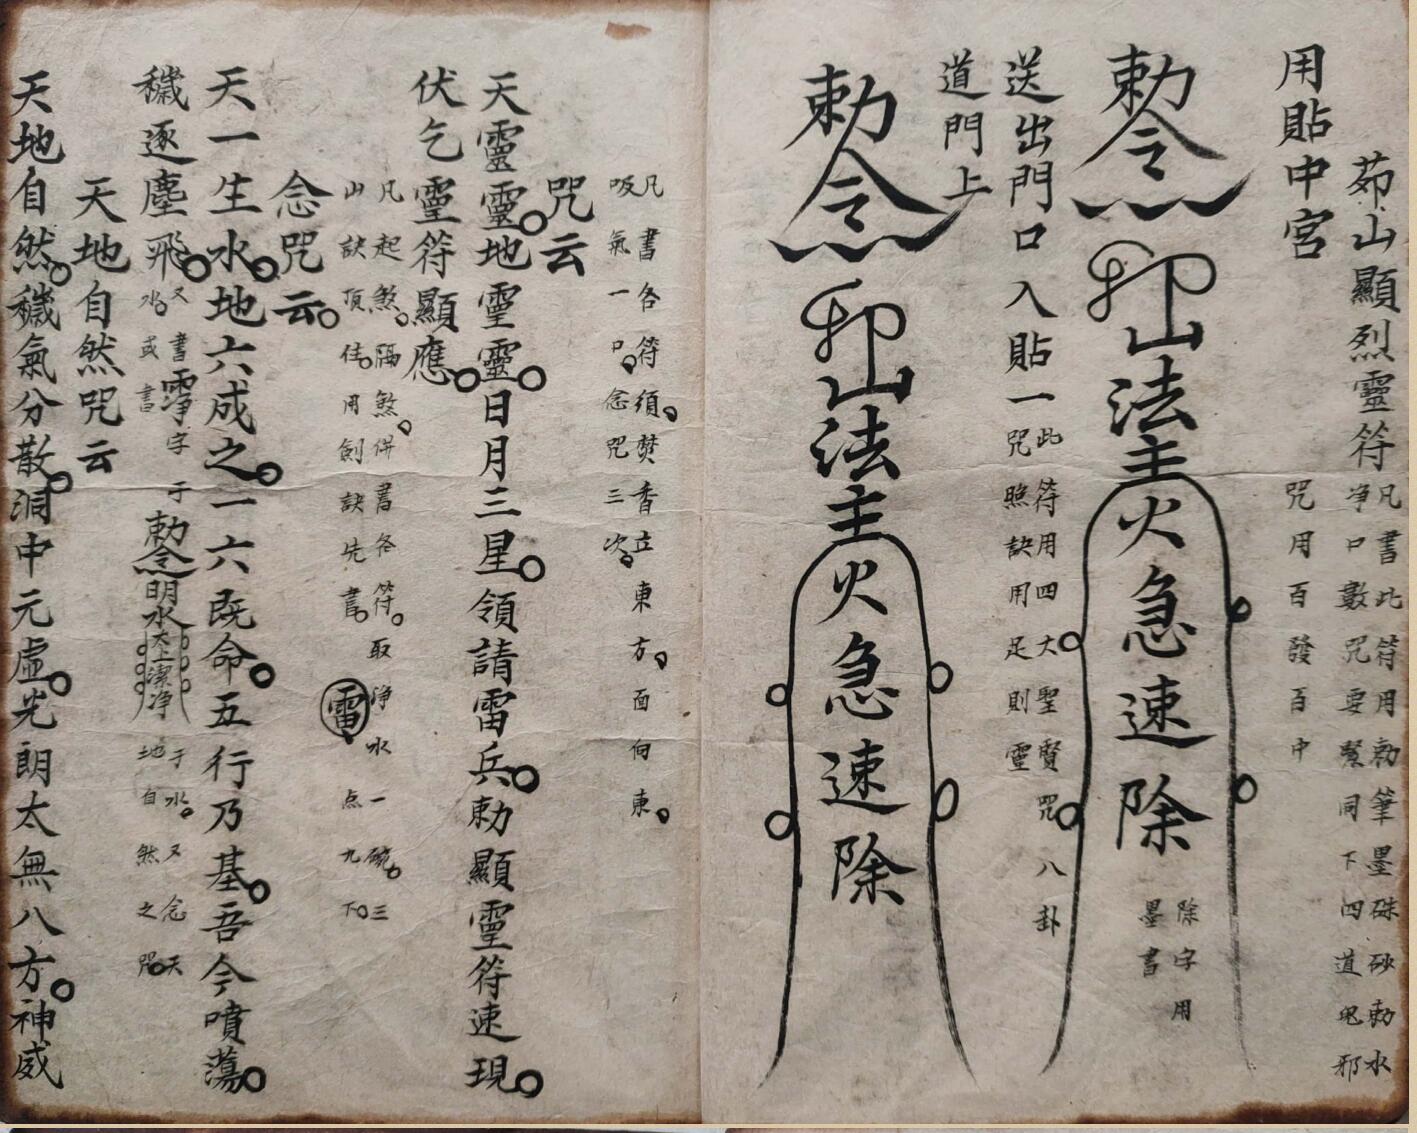 茆山顯烈靈符
凡書此符用勅筆墨硃砂勅水
净口數咒要緊同下四道鬼邪
用貼中宮
咒用百發百中
勅令
山法主火急速除
除字用
墨書
送出門口入貼一
此符用四大聖賢咒八卦
咒照訣用足則靈
道門上
勅令
山法主火急速除
凡書各符須焚香立東方面向東
吸氣一口念咒三次
咒云
天靈靈地靈靈日月三星領請雷兵勅顯靈符速現
伏乞靈符顯應
凡起煞隔煞併書各符取净水一碗三
山訣頂住用劍訣先書雷点九下
念咒云
天一生水地六成之一六既命五行乃基吾今噴蕩
穢逐塵飛
又書字于
水或書
勅令明水太上潔净
于水又念天
地自然之咒
天地自然咒云
天地自然穢氣分散洞中元虛光朗太無八方神威